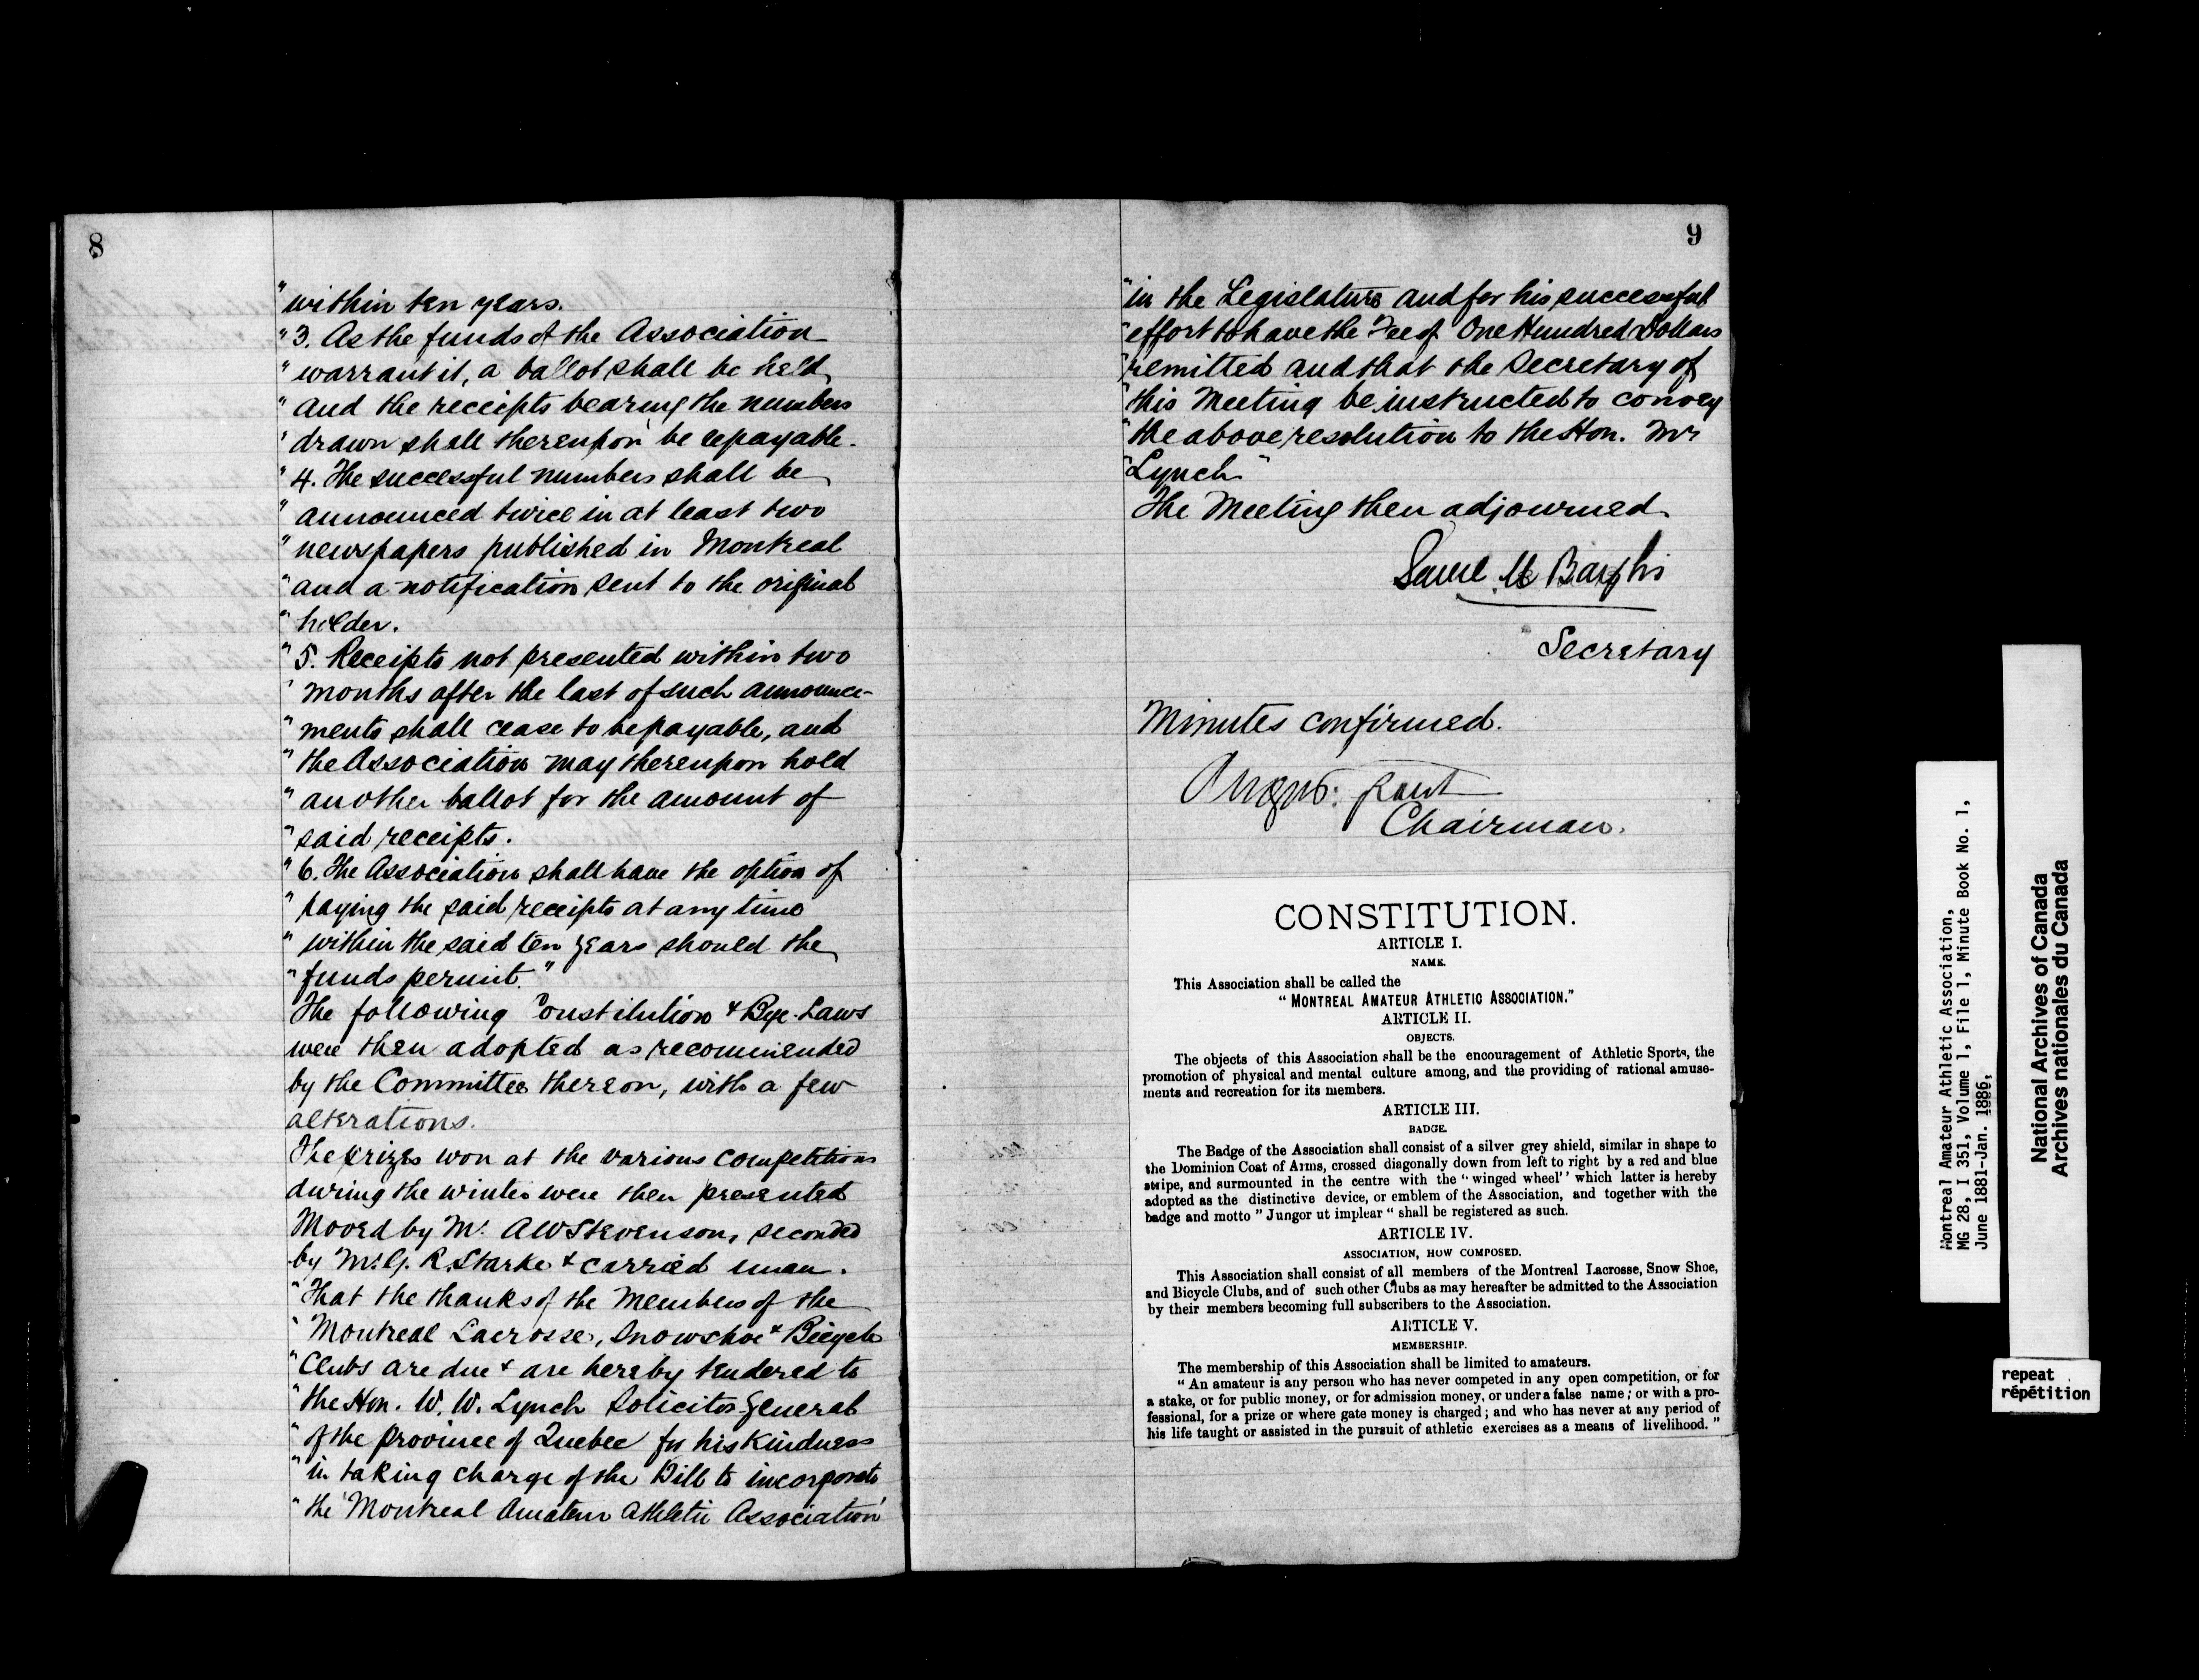 8
" within ten years.
" 3. As the funds of the Association
" warrant it, a ballot shall be held
" and the receipts bearing the numbers
" drawn shall thereupon be repayable.
" 4. The successful numbers shall be
" announced twice in at least two
" newspapers published in Montreal
" and a notification sent to the original
" holder.
" 5. Receipts not presented within two
" months after the last of such announce-
" ments shall cease to be payable, and
" the Association may thereupon hold
" another ballot for the amount of
" said receipts.
" 6. The Association shall have the option of
" paying the said receipts at any time
" within the said ten years should the
" funds permit."
The following Constitution & Bye-Laws
were then adopted as recommended
by the Committee thereon, with a few
alterations.
The prizes won at the various competitions
during the winter were then presented
Moved by Mr. A W Stevenson, seconded
by Mr. G. R. Starke & carried unan.
" That the thanks of the Members of the
" Montreal Lacrosse, Snowshoe & Bicycle
" Clubs are due & are hereby tendered to
" the Hon. W. W. Lynch Solicitor General
" of the province of Quebec for his kindness
" in taking charge of the Bill to incorporate
" the 'Montreal Amateur Athletic Association'
9
" in the Legislature and for his successful
" effort to have the Fee of One Hundred Dollars
" remitted and that the Secretary of
" this Meeting be instructed to convey
" the above resolution to the Hon. Mr
" Lynch"
The Meeting then adjourned
Secretary
Minutes confirmed.
Angus Grant
Chairman.
CONSTITUTION.
ARTICLE I.
NAME.
This Association shall be called the
" MONTREAL AMATEUR ATHLETIC ASSOCIATION."
ARTICLE II.
OBJECTS.
The objects of this Association shall be the encouragement of Athletic Sports, the
promotion of physical and mental culture among, and the providing of rational amuse-
ments and recreation for its members.
ARTICLE III.
BADGE.
The Badge of the Association shall consist of a silver grey shield, similar in shape to
the Dominion Coat of Arms, crossed diagonally down from left to right by a red and blue
stripe, and surmounted in the centre with the " winged wheel" which latter is hereby
adopted as the distinctive device, or emblem of the Association, and together with the
badge and motto " Jungor ut implear " shall be registered as such.
ARTICLE IV.
ASSOCIATION, HOW COMPOSED.
This Association shall consist of all members of the Montreal Lacrosse, Snow Shoe,
and Bicycle Clubs, and of such other Clubs as may hereafter be admitted to the Association
by their members becoming full subscribers to the Association.
ARTICLE V.
MEMBERSHIP.
The membership of this Association shall be limited to amateurs.
" An amateur is any person who has never competed in any open competition, or for
a stake, or for public money, or for admission money, or under a false name ; or with a pro-
fessional, for a prize or where gate money is charged ; and who has never at any period of
his life taught or assisted in the pursuit of athletic exercises as a means of livelihood. "
Montreal Amateur Athletic Association,
MG 28, I 351, Volume 1, File 1, Minute Book No. 1,
June 1881-Jan. 1886,
National Archives of Canada
Archives nationales du Canada
repeat
répétition